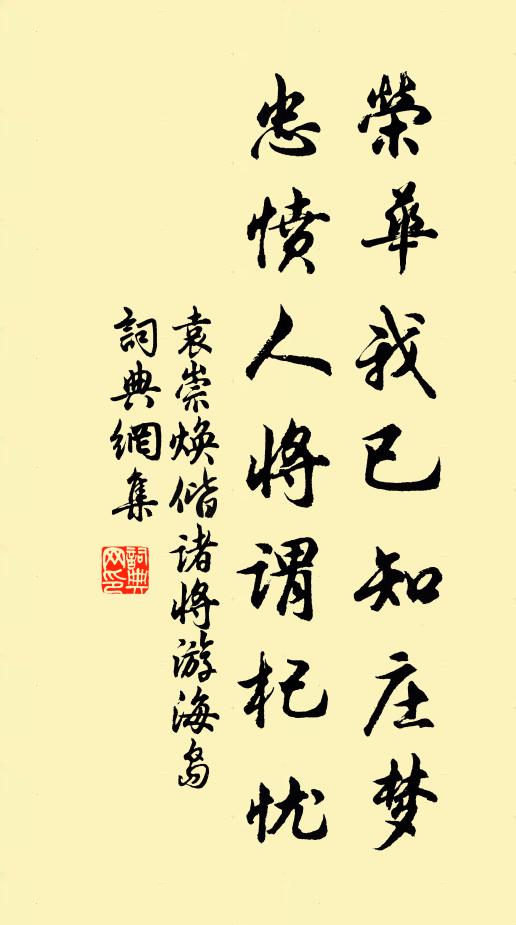 榮華我已知庄梦
忠憤人將謂杞忧
袁崇焕偕诸將游海島
詞典網集
詞典网印